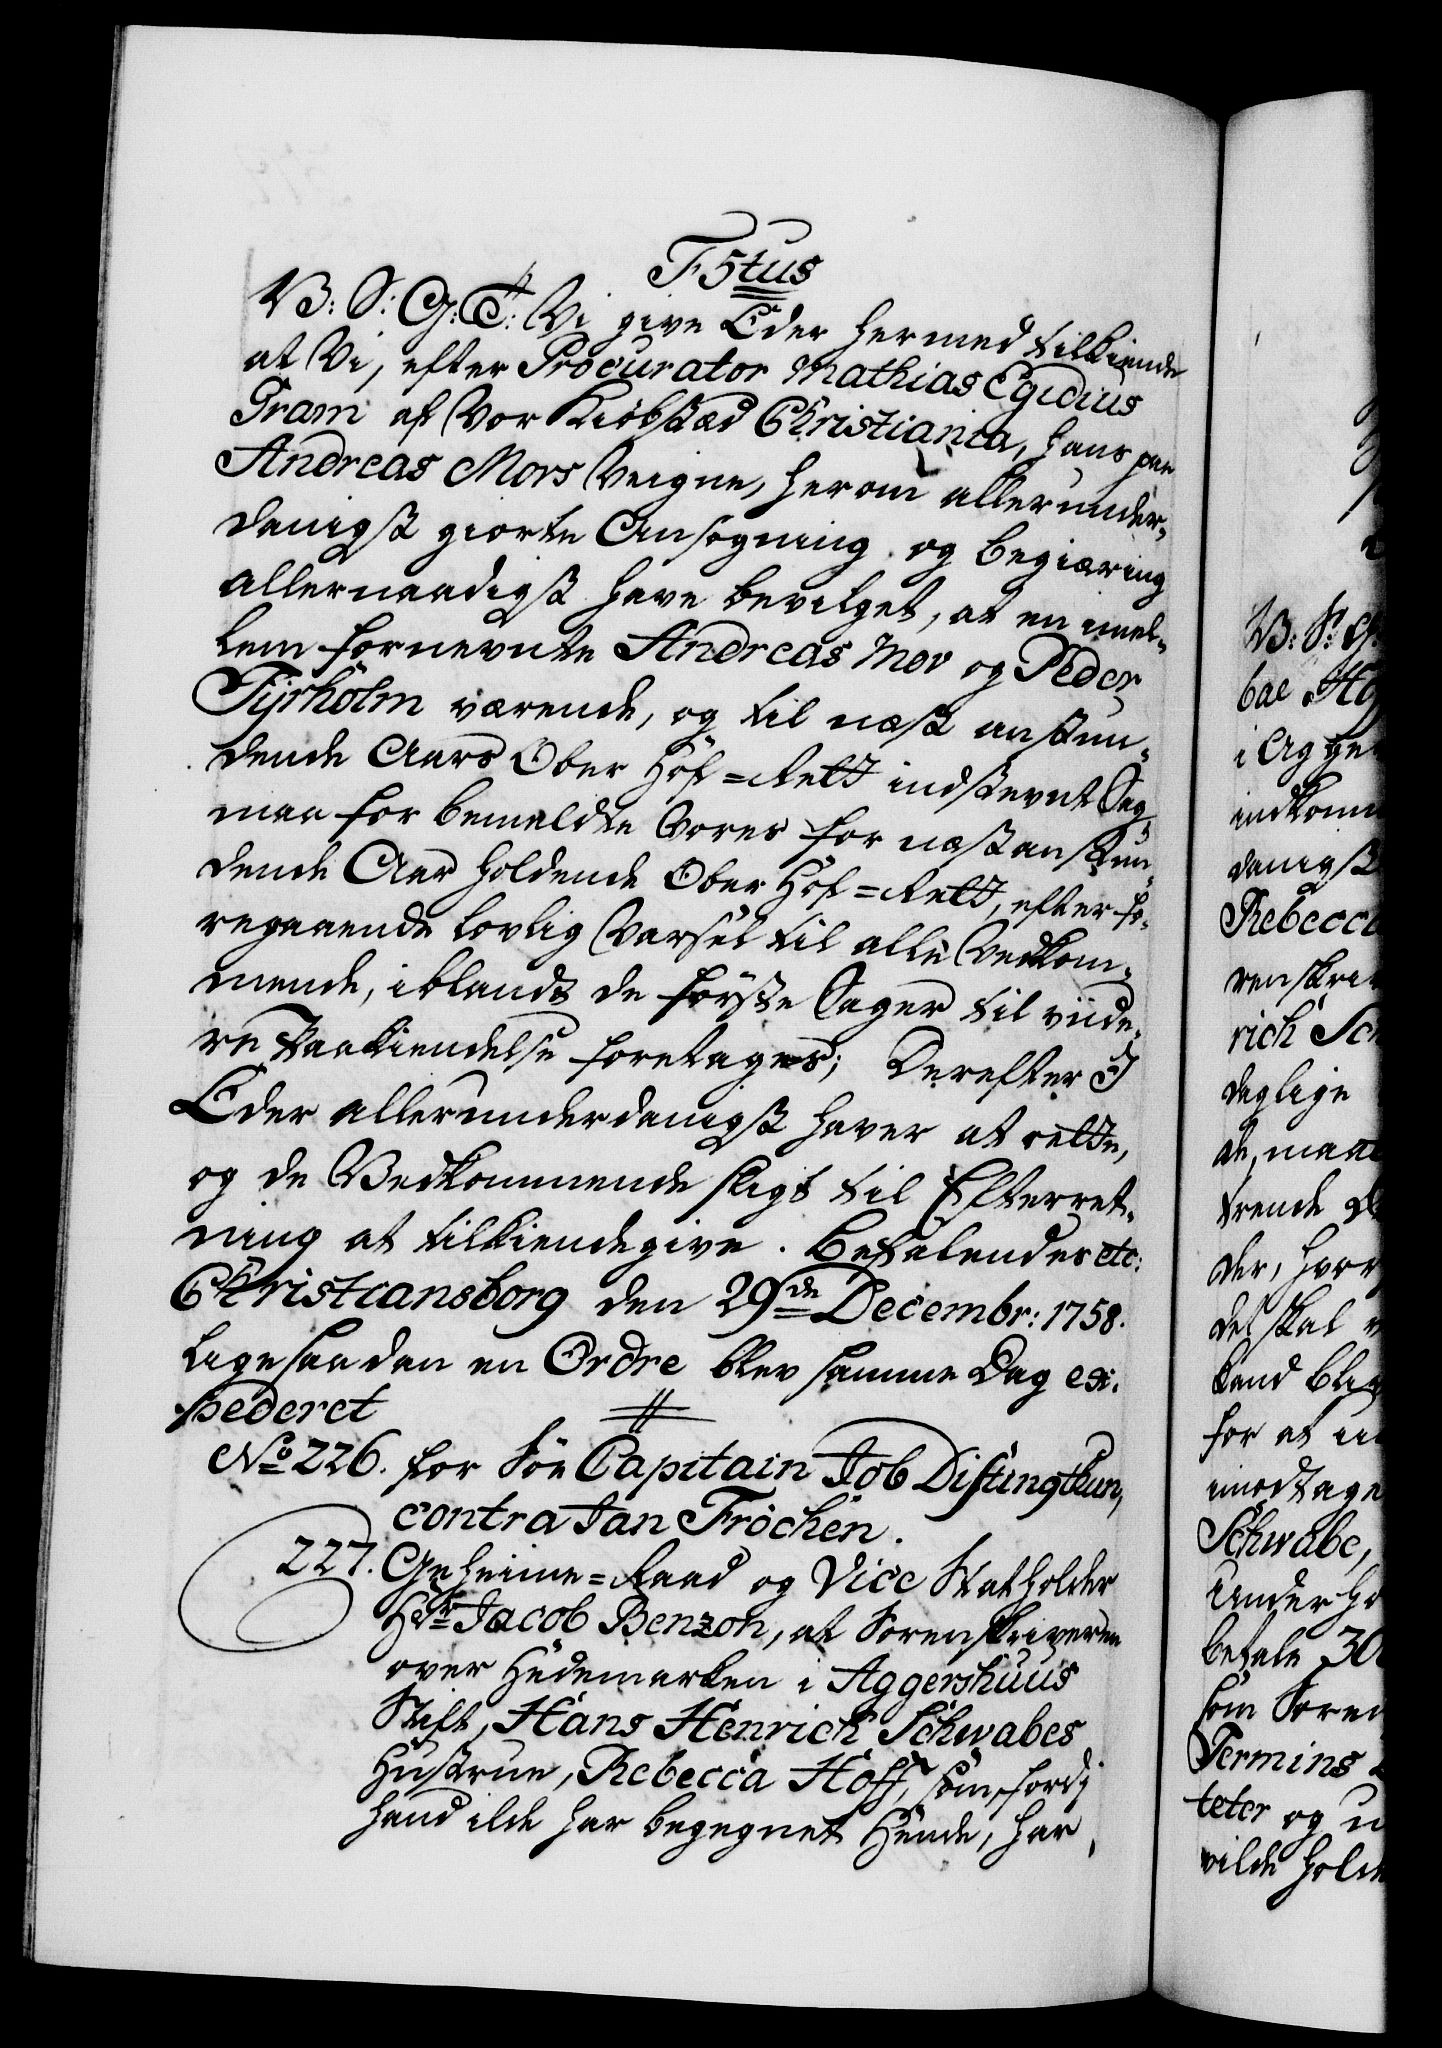 F5tus
V: S: G: T: Vi give Eder hermed tilkiende
at Vi, efter Procurator Mathias Egidius
Gram af Vor Kiøbstæd Christiania, hans paa
Andreas Mors Veigne, herom allerunder-
danigst giorte Ansøgning og begiæring
allernaadigst have bevilget, at en imel-
lem fornevnte Andreas Mor og Peder
Tyrholm værende, og til næst anstun-
dende Aars Ober Hof=Rett indstevnt Sag
maa for bemeldte Vores for næstanstun-
dende Aar holdende Ober Hof=Rett, efter fo-
regaaende lovlig Varsel til alle Vedkom-
mende, iblandt de første Sager til viide-
re Paakiendelse foretages; Derefter I
Eder allerunderdanigst haver at rette,
og de Vedkommende sligt til Efterret-
ning at tilkiendegive. Befalendes etc:
Christiansborg den 29de Decembr: 1758.
Ligesaadan en Ordre blev samme Dag ex-
pederet
No 226. for Søe Capitain Job Distingthun,
contra Jan Frochen.
227. Geheime=Raad og Vice Statholder
Hr Jacob Benzon, at Sorenskriveren
over Hedemarken i Aggershuus
Stift, Hans Henrich Schwabes
Hustrue, Rebecca Hoff, som, fordj
hand ilde har begegnet Hende, har
V: S: G:
bae Ho
i Agger
indkom
danigst
Rebecca
renskri
rich Sch
daglige
de, maa
trende
der, hvor
det skal
land bli
for at
imodtage
Schwabe,
Under ho
betale 30
som Soren
Termins
teter og u
vilde hold